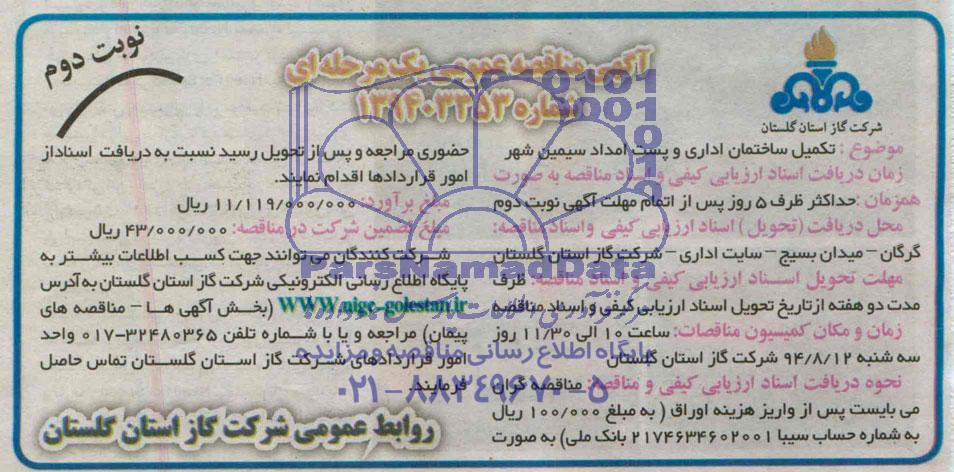 نوبت دوم
آگهی مناقصه عمومی یک مرحله ای
شماره ۱۳۹۴۰۳۲۵۳
شرکت گاز استان گلستان
موضوع : تکمیل ساختمان اداری و پست امداد سیمین شهر
زمان دریافت اسناد ارزیابی کیفی و اسناد مناقصه به صورت
همزمان :حداکثر ظرف ۵ روز پس از اتمام مهلت آگهی نوبت دوم
محل دریافت (تحویل ) اسناد ارزیابی کیفی واسناد مناقصه:
گرگان – میدان بسیج – سایت اداری – شرکت گاز استان گلستان
مهلت تحویل اسناد ارزیابی کیفی و اسناد مناقصه: ظرف
مدت دو هفته ازتاریخ تحویل اسناد ارزیابی کیفی و اسناد مناقصه
زمان و مکان کمیسیون مناقصات: ساعت ۱۰ الی ۱۱/۳۰ روز
سه شنبه ۹۴/۸/۱۲ شرکت گاز استان گلستان
نحوه دریافت اسناد ارزیابی کیفی و مناقصه: مناقصه گران
می بایست پس از واریز هزینه اوراق ( به مبلغ ۱۰۰/۰۰۰ ریال
به شماره حساب سیبا ۲۱۷۴۶۳۴۶۰۲۰۰۱ بانک ملی) به صورت
حضوری مراجعه و پس از تحویل رسید نسبت به دریافت اسناداز
امور قراردادها اقدام نمایند.
مبلغ برآورد: ۱۱/۱۱۹/۰۰۰/۰۰۰ ریال
مبلغ تضمین شرکت در مناقصه: ۴۳/۰۰۰/۰۰۰ ریال
شرکت کنندگان می توانند جهت کسب اطلاعات بیشتر به
پایگاه اطلاع رسانی الکترونیکی شرکت گاز استان گلستان به آدرس
WWW.nigc-golestan.ir (بخش آگهی ها – مناقصه های
پیمان) مراجعه و یا با شماره تلفن ۳۲۴۸۰۳۶۵-۰۱۷ واحد
امور قراردادهای شرکت گاز استان گلستان تماس حاصل
فرمایند.
روابط عمومی شرکت گاز استان گلستان
ParsNamadData
پایگاه اطلاع رسانی مناقصه و مزایده
۰۲۱-۸۸۳۴۹۶۷۰-۵